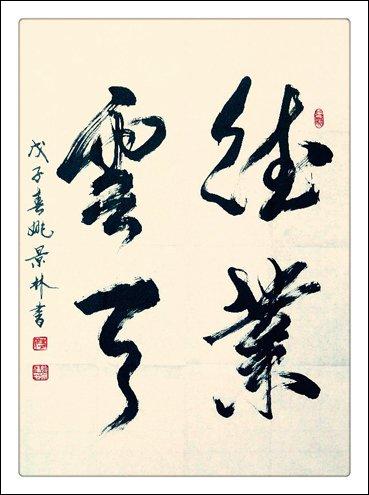 德業
雲天
戊子春姚景林書